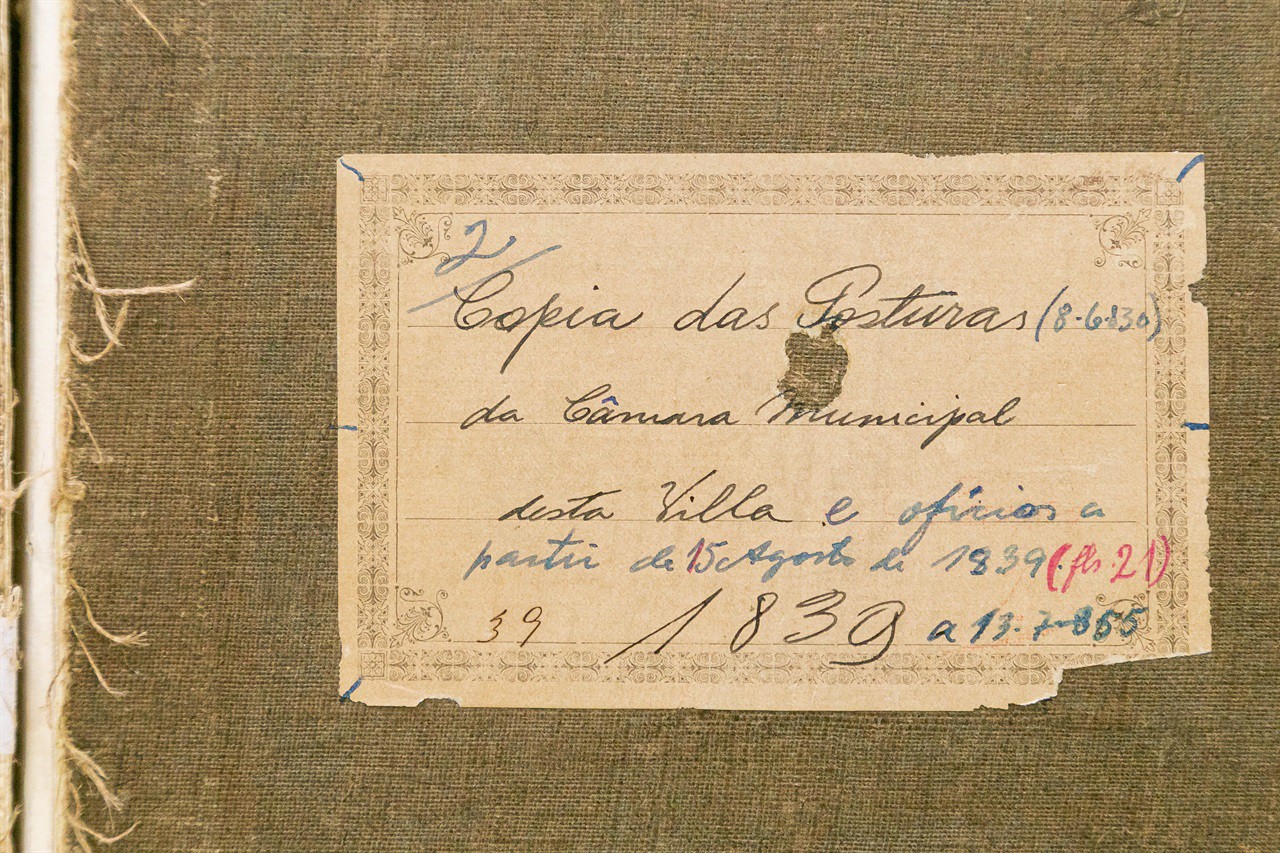 2
Copia das Posturas (8-6-830)
da Câmara Municipal
desta Villa e ofícios a
partir de 15 Agosto de 1839 (fls. 21)
39 1839 a 13-7-855